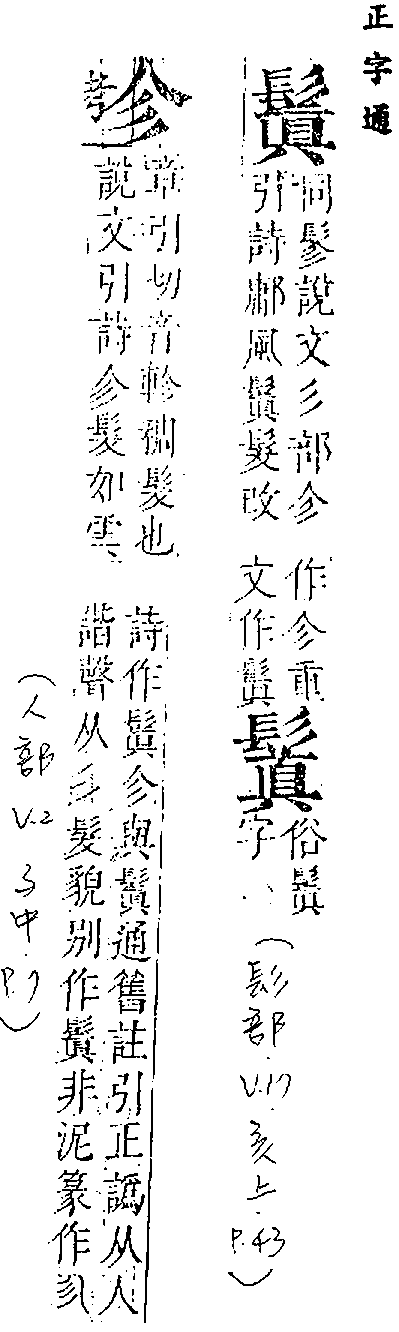 正字通
鬒
同鬖說文彡部㐱
引詩鄘風鬒髮改
作㐱重
文作鬒
鬒
俗鬒
字
(髟部.V.17.亥上.P.43)
㐱
章引切音軫稠髮也
說文引詩㐱髮如雲
詩作鬒㐱與鬒通舊註引正譌从人
諧聲从彡髮貌別作鬒非泥篆作
(人部 V.2 子中.P.7)